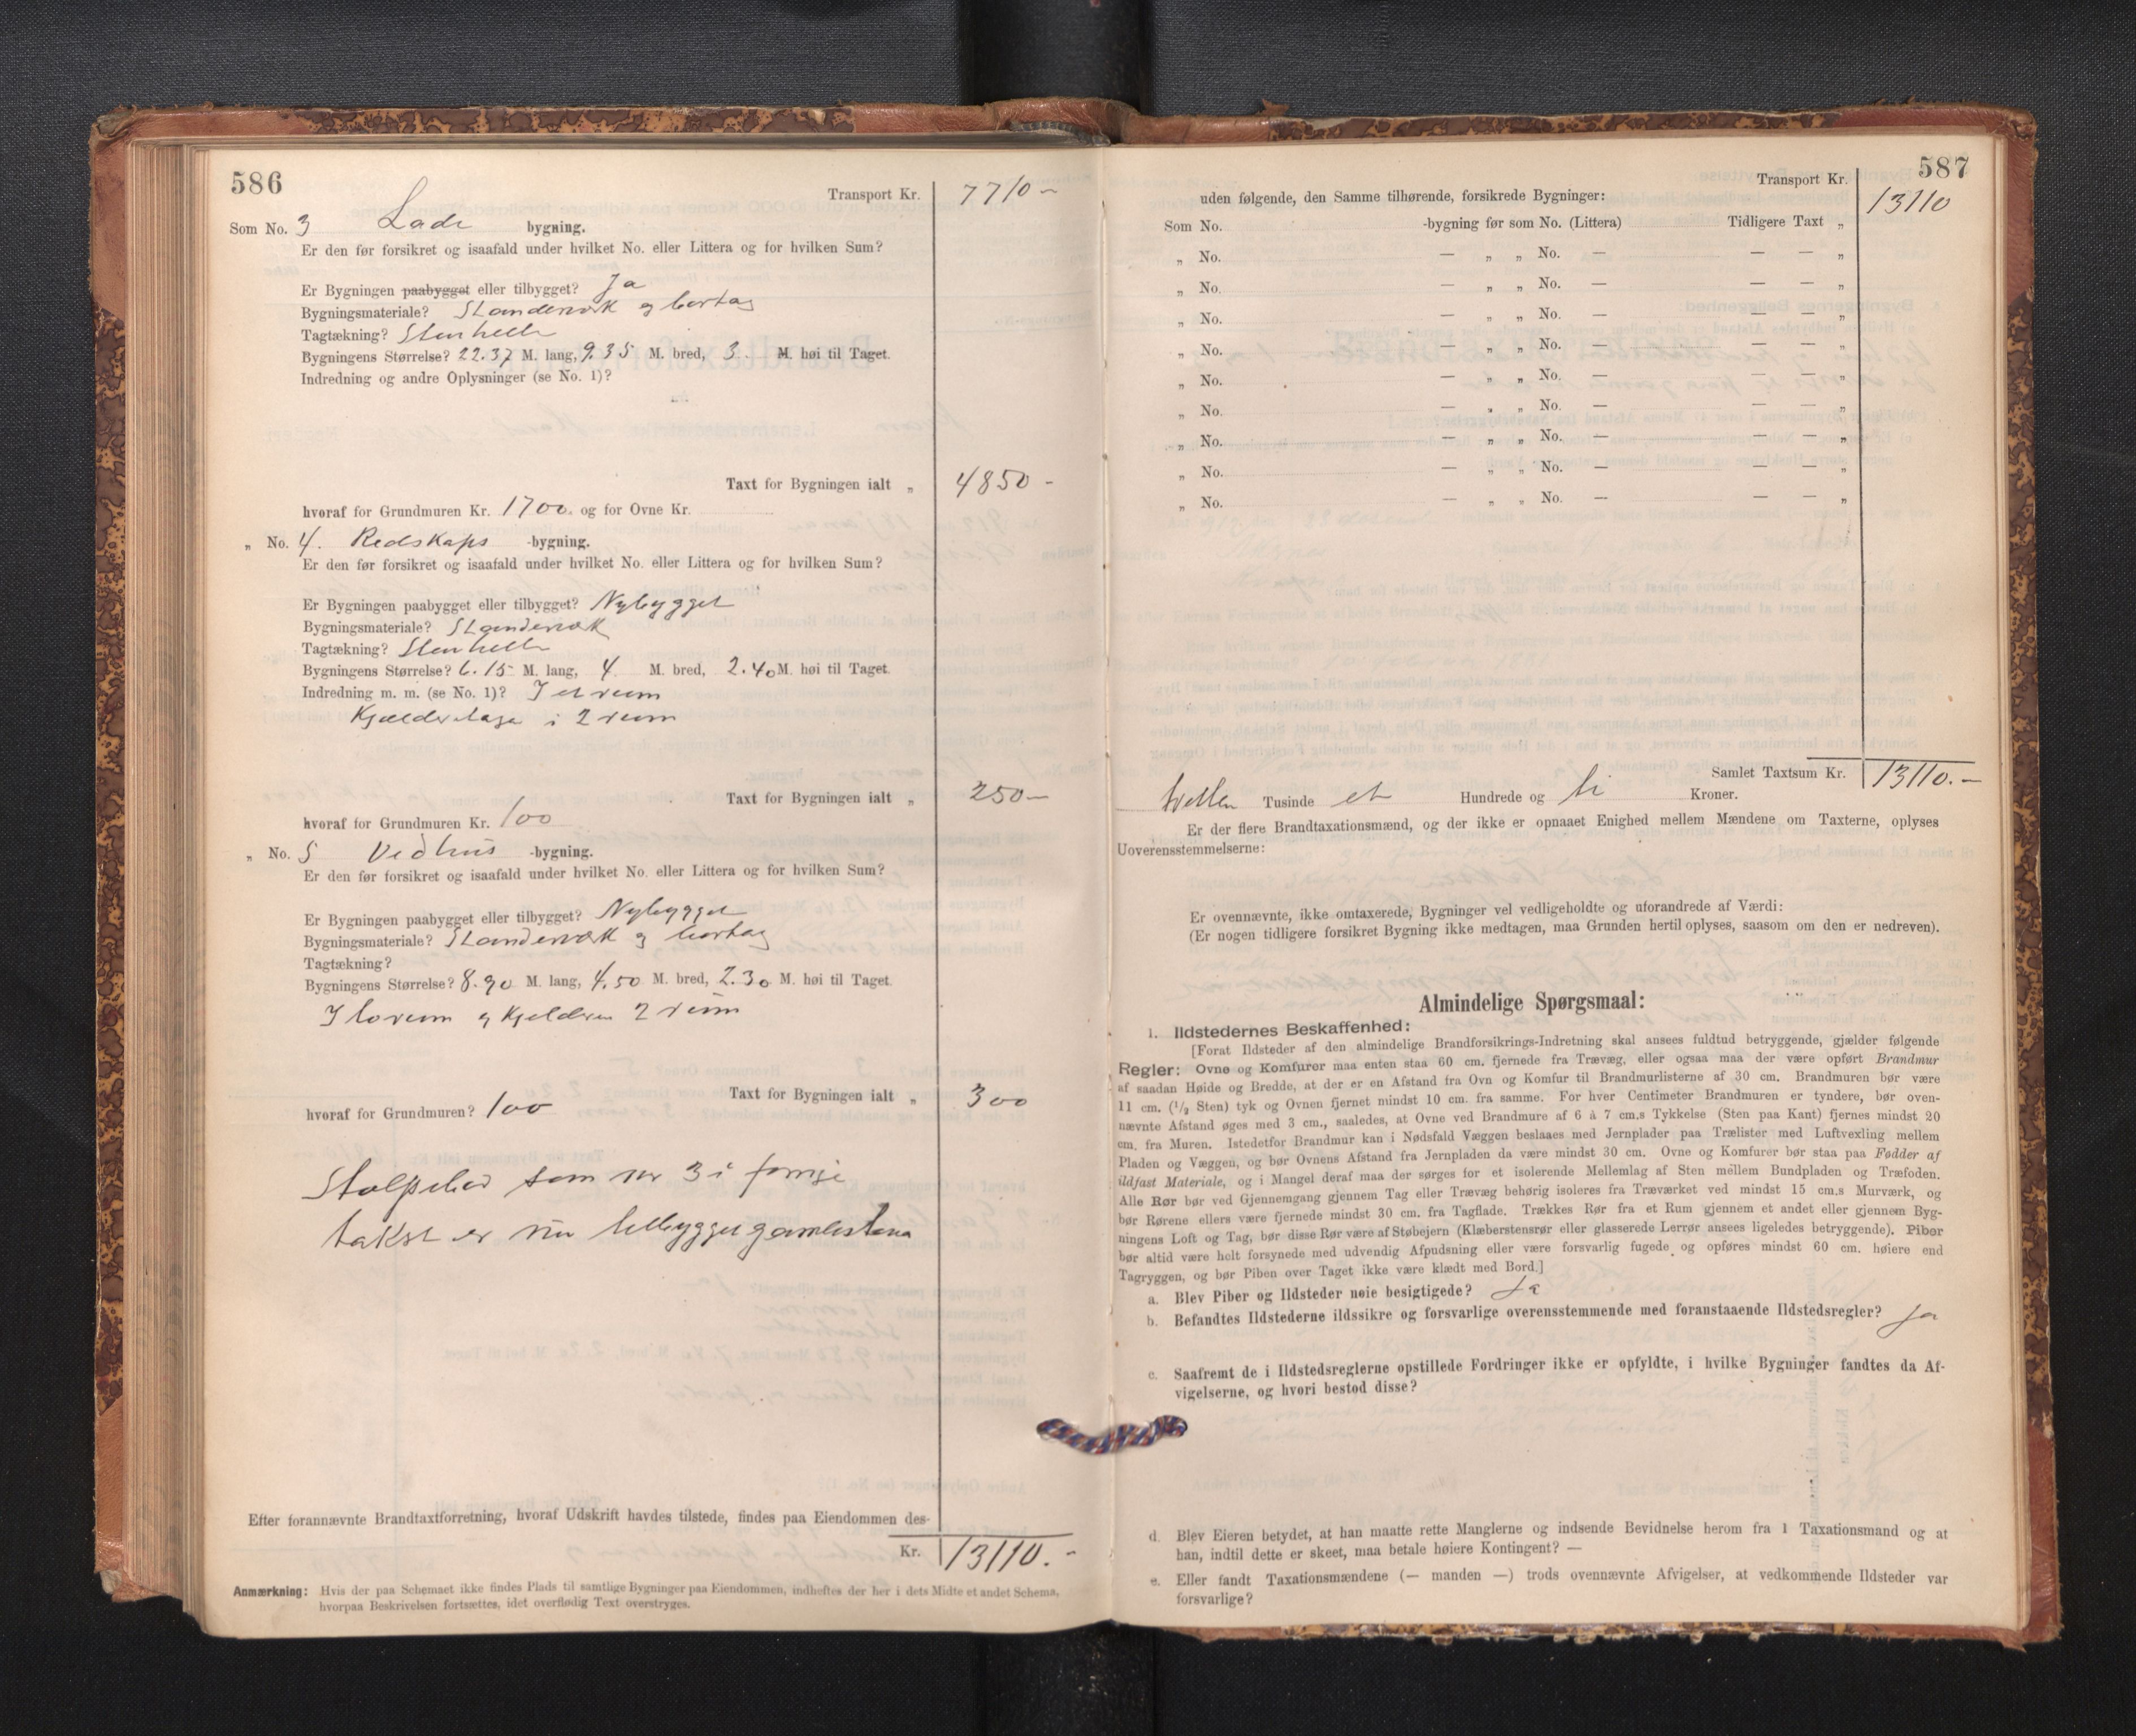 586
Transport Kr. 7710-
Som No. 3 Lade bygning.
Er den før forsikret og isaafald under hvilket No. eller Littera og for hvilken Sum?
Er Bygningen paabygget eller tilbygget? Ja
Bygningsmateriale? Standerværk og bortag
Tagtækning? Stenhelle
Bygningens Størrelse? 22.37 M. lang, 9.35 M. bred, 3. M. høi til Taget.
Indredning og andre Oplysninger (se No. 1)?
Taxt for Bygningen ialt „ 4850-
hvoraf for Grundmuren Kr. 1700. og for Ovne Kr.
„ No. 4. Redskaps -bygning.
Er den før forsikret og isaafald under hvilket No. eller Littera og for hvilken Sum?
Er Bygningen paabygget eller tilbygget? Nybygget
Bygningsmateriale? Standerværk
Tagtækning? Stenhelle
Bygningens Størrelse? 6.15 M. lang, 4 M. bred, 2.40 M. høi til Taget.
Indredning m. m. (se No. 1)? I et rum
Kjælderetage i 2 rum
Taxt for Bygningen ialt „ 250-
hvoraf for Grundmuren Kr. 100
„ No. 5 Vedhus -bygning.
Er den før forsikret og isaafald under hvilket No. eller Littera og for hvilken Sum?
Er Bygningen paabygget eller tilbygget? Nybygget
Bygningsmateriale? Standerværk og bortag
Tagtækning?
Bygningens Størrelse? 8.90 M. lang, 4.50 M. bred, 2.30 M. høi til Taget.
I to rum og Kjelderen 2 rum
Taxt for Bygningen ialt „ 300
hvoraf for Grundmuren? 100
som nr 3 i forrige
takst er nu tilbygget
Efter forannævnte Brandtaxtforretning, hvoraf Udskrift havdes tilstede, findes paa Eiendommen des-
Kr. 13110.-
Anmærkning: Hvis der paa Schemaet ikke findes Plads til samtlige Bygninger paa Eiendommen, indheftes der her i dets Midte et andet Schema,
hvorpaa Beskrivelsen fortsættes, idet overflødig Text overstryges.
587
Transport Kr. 13110
uden følgende, den Samme tilhørende, forsikrede Bygninger:
Som No. -bygning før som No. (Littera) Tidligere Taxt „
„ No. — „ „ No. — — — „
„ No. — „ „ No. — — — „
„ No. — „ „ No. — — — „
„ No. — „ „ No. — — — „
„ No. — „ „ No. — — — „
„ No. — „ „ No. — — — „
„ No. — „ „ No. — — — „
„ No. — „ „ No. — — — „
„ No. — „ „ No. — — — „
Samlet Taxtsum Kr. 13110.-
tretten Tusinde et Hundrede og ti Kroner.
Er der flere Brandtaxationsmænd, og der ikke er opnaaet Enighed mellem Mændene om Taxterne, oplyses
Uoverensstemmelserne:
Er ovennævnte, ikke omtaxerede, Bygninger vel vedligeholdte og uforandrede af Værdi:
(Er nogen tidligere forsikret Bygning ikke medtagen, maa Grunden hertil oplyses, saasom om den er nedreven).
Almindelige Spørgsmaal:
1. Ildstedernes Beskaffenhed:
[Forat Ildsteder af den almindelige Brandforsikrings-Indretning skal ansees fuldtud betryggende, gjælder følgende
Regler: Ovne og Komfurer maa enten staa 60 cm. fjernede fra Trævæg, eller ogsaa maa der være opført Brandmur
af saadan Høide og Bredde, at der er en Afstand fra Ovn og Komfur til Brandmurlisterne af 30 cm. Brandmuren bør være
11 cm. (1/2 Sten) tyk og Ovnen fjernet mindst 10 cm. fra samme. For hver Centimeter Brandmuren er tyndere, bør oven-
nævnte Afstand øges med 3 cm., saaledes, at Ovne ved Brandmure af 6 à 7 cm.s Tykkelse (Sten paa Kant) fjernes mindst 20
cm. fra Muren. Istedetfor Brandmur kan i Nødsfald Væggen beslaaes med Jernplader paa Trælister med Luftvexling mellem
Pladen og Væggen, og bør Ovnens Afstand fra Jernpladen da være mindst 30 cm. Ovne og Komfurer bør staa paa Fødder af
ildfast Materiale, og i Mangel deraf maa der sørges for et isolerende Mellemlag af Sten mellem Bundpladen og Træfoden.
Alle Rør bør ved Gjennemgang gjennem Tag eller Trævæg behørig isoleres fra Træværket ved mindst 15 cm.s Murværk, og
bør Rørene ellers være fjernede mindst 30 cm. fra Tagflade. Trækkes Rør fra et Rum gjennem et andet eller gjennem Byg-
ningens Loft og Tag, bør disse Rør være af Støbejern (Klæberstensrør eller glasserede Lerrør ansees ligeledes betryggende). Piber
bør altid være helt forsynede med udvendig Afpudsning eller være forsvarlig fugede og opføres mindst 60 cm. høiere end
Tagryggen, og bør Piben over Taget ikke være klædt med Bord.]
a. Blev Piber og Ildsteder nøie besigtigede? Ja
b. Befandtes Ildstederne ildssikre og forsvarlige overensstemmende med foranstaaende Ildstedsregler? Ja
c. Saafremt de i Ildstedsreglerne opstillede Fordringer ikke er opfyldte, i hvilke Bygninger fandtes da Af-
vigelserne, og hvori bestod disse?
d. Blev Eieren betydet, at han maatte rette Manglerne og indsende Bevidnelse herom fra 1 Taxationsmand og at
han, indtil dette er skeet, maa betale høiere Kontingent? —
e. Eller fandt Taxationsmændene (— manden —) trods ovennævnte Afvigelser, at vedkommende Ildsteder var
forsvarlige?